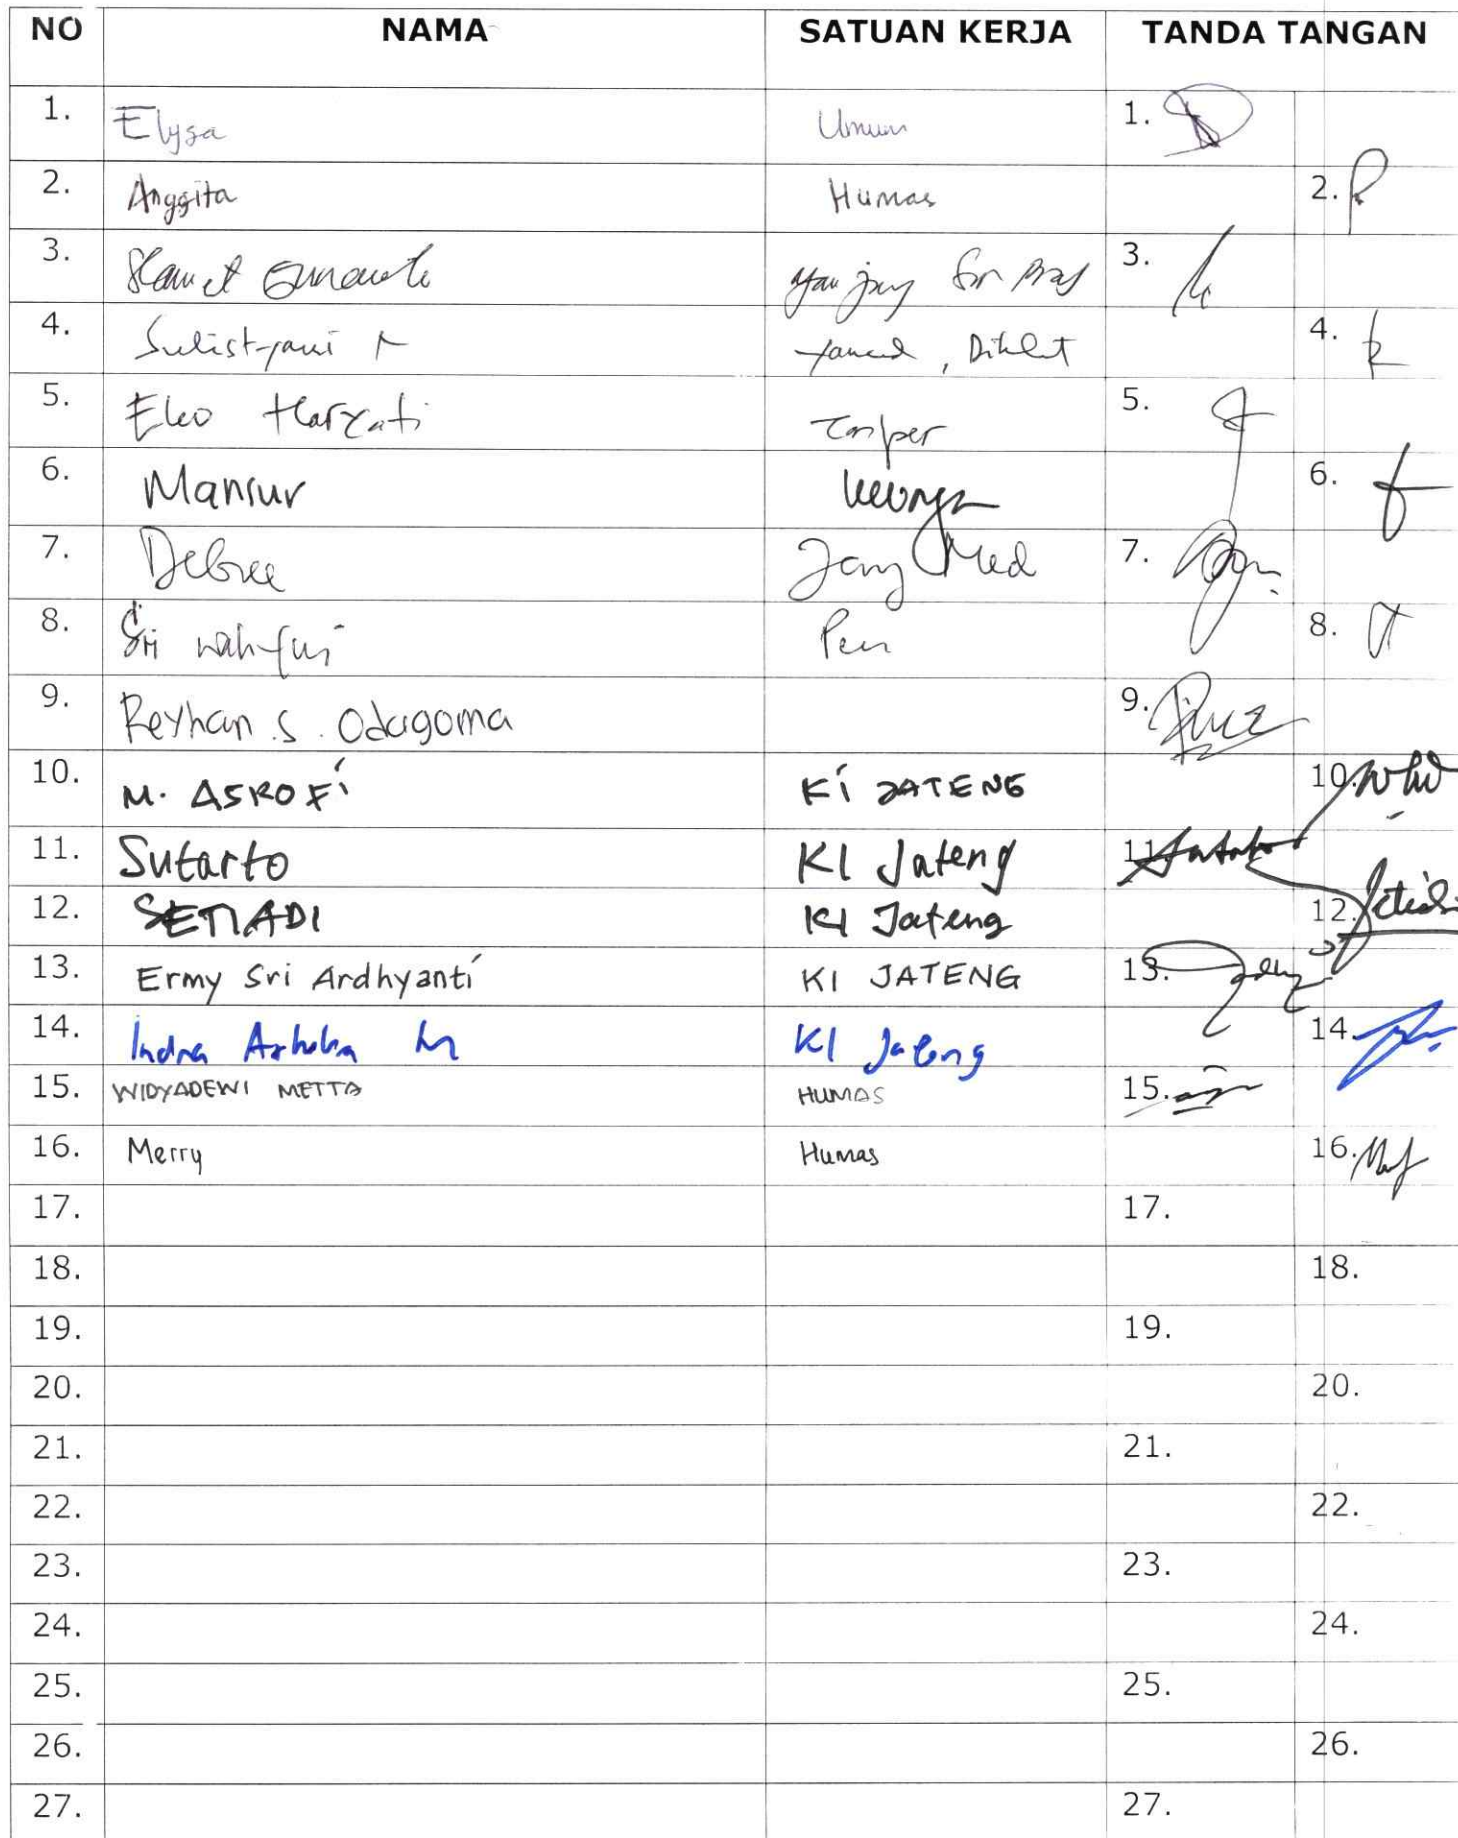 NO NAMA SATUAN KERJA TANDA TANGAN
1. Elysa Umum 1.
2. Anggita Humas 2.
3. Slamet 3.
4. , Diklat 4.
5. Eko Haryati 5.
6. Mansur 6.
7. Jang Med 7.
8. Sri wahyuni 8.
9. Reyhan . S . Odagoma 9.
10. M. ASROFI KI JATENG 10.
11. Sutarto KI Jateng 11.
12. SETIADI KI Jateng 12.
13. Ermy Sri Ardhyanti KI JATENG 13.
14. Indra Ashoka KI Jateng 14.
15. WIDYADEWI METTA HUMAS 15.
16. Merry Humas 16.
17. 17.
18. 18.
19. 19.
20. 20.
21. 21.
22. 22.
23. 23.
24. 24.
25. 25.
26. 26.
27. 27.